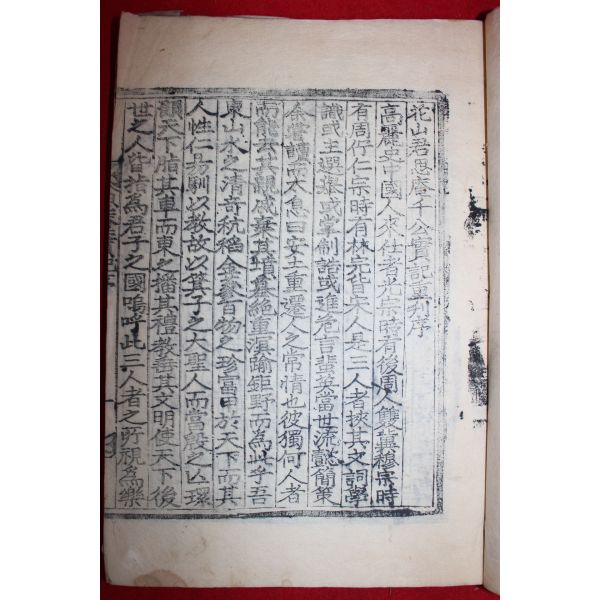 花山君思庵千公實記重刊序
高麗史中國人來仕者光宗時有後周人雙冀穆宗時
有周佇仁宗時有林完皆宋人是三人者挾其文詞學
識或主選擧或掌制誥或進危言蜚英當世流懿簡策
余嘗讀而太息曰安土重遷人之常情也彼獨何人者
而能去其親戚棄其墳墓絶重溟踰鉅野而爲此乎吾
東山水之清奇秔稻金銀百物之珍富甲於天下而其
人性仁易馴以教故以箕子之大聖人而當殷之亾環
顧天下脂其車而東之播其禮教善其文明使天下後
世之人皆指爲君子之國嗚呼此三人者之所視爲樂